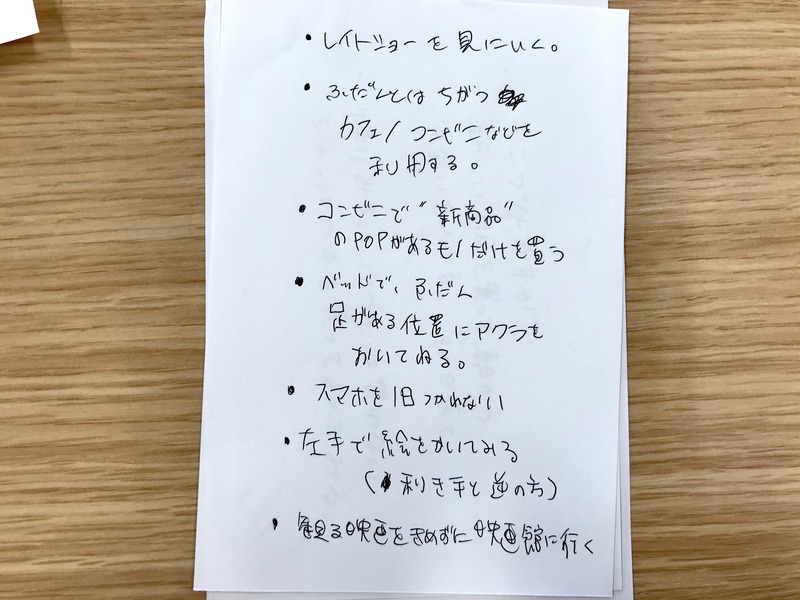 ・レイトショーを見にいく。
・ふだんとはちがう
カフェ/コンビニなどを
利用する。
・コンビニで“新商品”
のPOPがあるモノだけを買う
・ベッドで、ふだん
足がある位置にアタマを
おいてねる。
・スマホを1日つかわない
・左手で絵をかいてみる
(利き手と逆の方)
・観る映画をきめずに映画館に行く